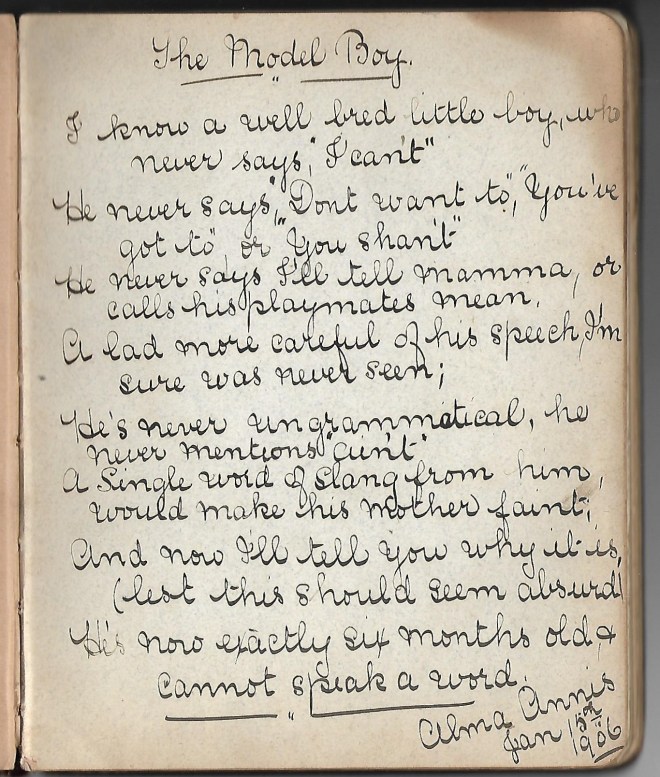 The Model Boy.
I know a well bred little boy, who
never says, "I can't"
He never says, "Dont want to", "You've
got to", or "You shan't"
He never says I'll tell mamma, or
calls his playmates mean.
A lad more careful of his speech, I'm
sure was never seen;
He's never ungrammatical, he
never mentions "ain't"
A Single word of slang from him,
would make his mother faint;
And now I'll tell you why it is,
(lest this should seem absurd)
He's now exactly six months old, &
cannot speak a word.
Alma Annis
Jan 15th
1906